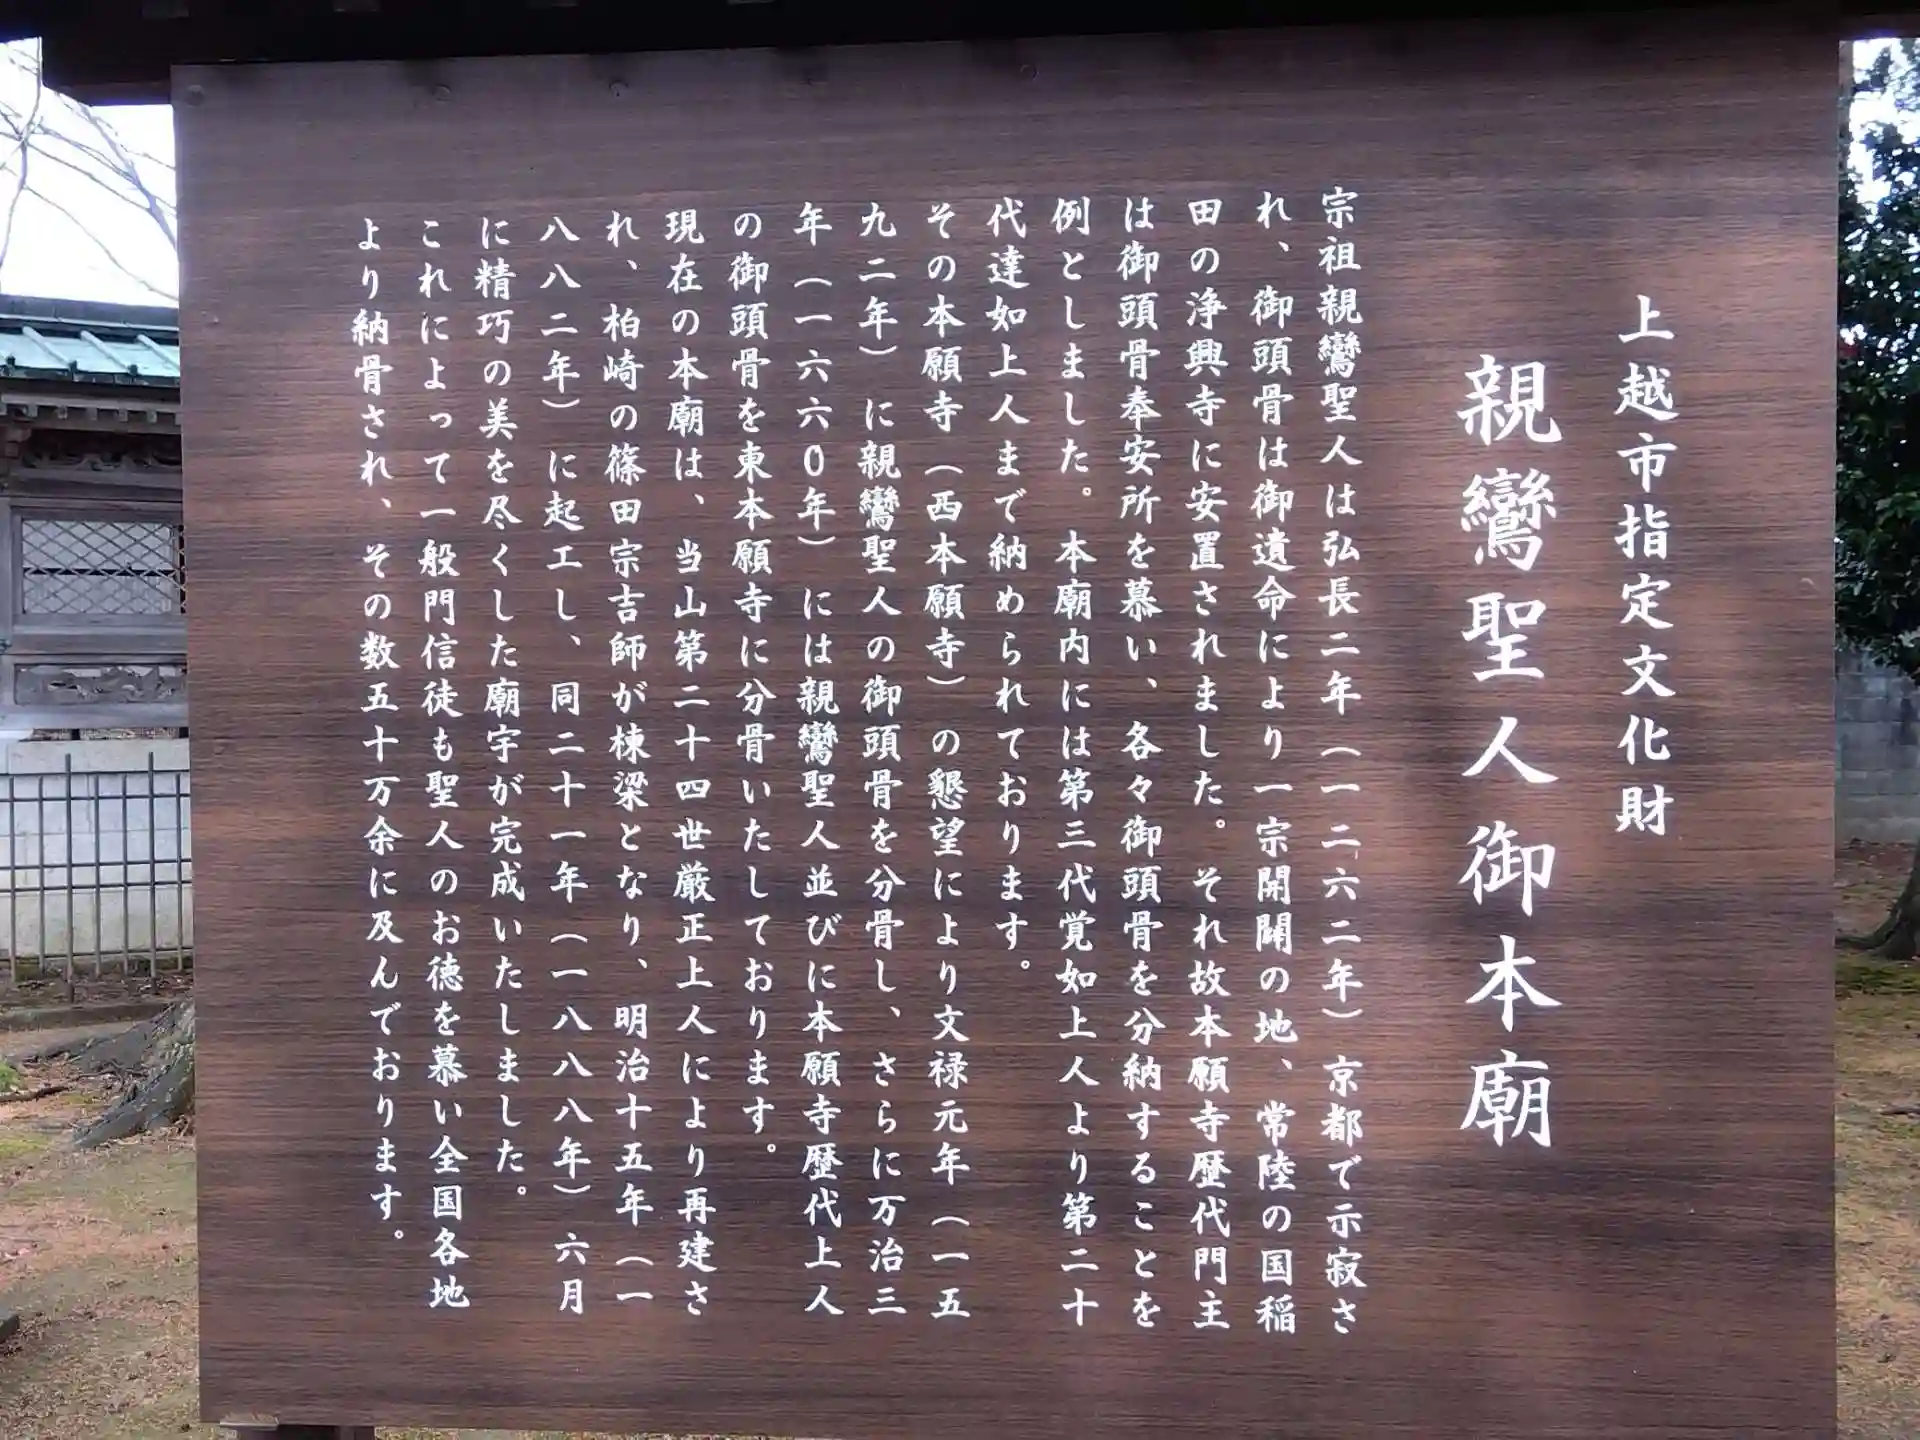 上越市指定文化財
親鸞聖人御本廟
宗祖親鸞聖人は弘長二年（一二六二年）京都で示寂さ
れ、御頭骨は御遺命により一宗開闢の地、常陸の国稲
田の浄興寺に安置されました。それ故本願寺歴代門主
は御頭骨奉安所を慕い、各々御頭骨を分納することを
例としました。本廟内には第三代覚如上人より第二十
代達如上人まで納められております。
その本願寺（西本願寺）の懇望により文禄元年（一五
九二年）に親鸞聖人の御頭骨を分骨し、さらに万治三
年（一六六０年）には親鸞聖人並びに本願寺歴代上人
の御頭骨を東本願寺に分骨いたしております。
現在の本廟は、当山第二十四世厳正上人により再建さ
れ、柏崎の篠田宗吉師が棟梁となり、明治十五年（一
八八二年）に起工し、同二十一年（一八八八年）六月
に精巧の美を尽くした廟宇が完成いたしました。
これによって一般門信徒も聖人のお徳を慕い全国各地
より納骨され、その数五十万余に及んでおります。